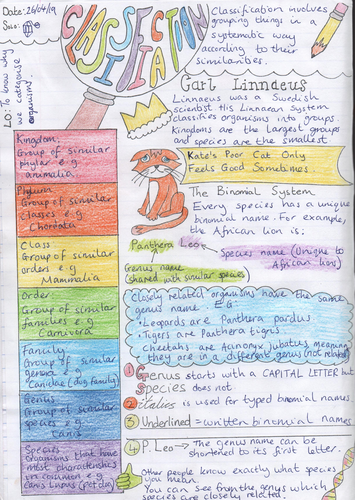 Date: 26/04/19
Solo:
LO: To know why
we categorise
organisms
CLASSIFICATION
Classification involves
grouping things in a
systematic way
according to their
similarities.
Carl Linnaeus
Linnaeus was a Swedish
scientist. His Linnaean System
classifies organisms into groups.
Kingdoms are the largest groups
and species are the smallest.
Kate's Poor Cat Only
Feels Good Sometimes.
Kingdom
Group of similar
phyla e.g
animalia.
Phylum
Group of similar
classes e.g
Chordata
Class
Group of similar
orders e.g
Mammalia
Order
Group of similar
families e.g
Carnivora
Family
Group of similar
genera e.g
Canidae (dog family)
Genus
Group of similar
species e.g
Canis
Species
Organisms that have
most characteristics
in common e.g
Canis Lupus (pet dog)
The Binomial System
Every species has a unique
binomial name. For example,
the African lion is:
Panthera Leo
Species name (Unique to
African lions)
Genus name
(shared with similar species)
Closely related organisms have the same
genus name. E.G:
•Leopards are Panthera pardus
•Tigers are Panthera tigris
•Cheetahs are Acinonyx jubatus, meaning
they are in a different genus (not related)
1 Genus starts with a CAPITAL LETTER but
Species does not
2 italics is used for typed binomial names
3 Underlined = written binomial names
4 P. Leo → The genus name can be
shortened to its first letter.
Other people know exactly what species
you mean.
You can see from the genus which
species are closely related.